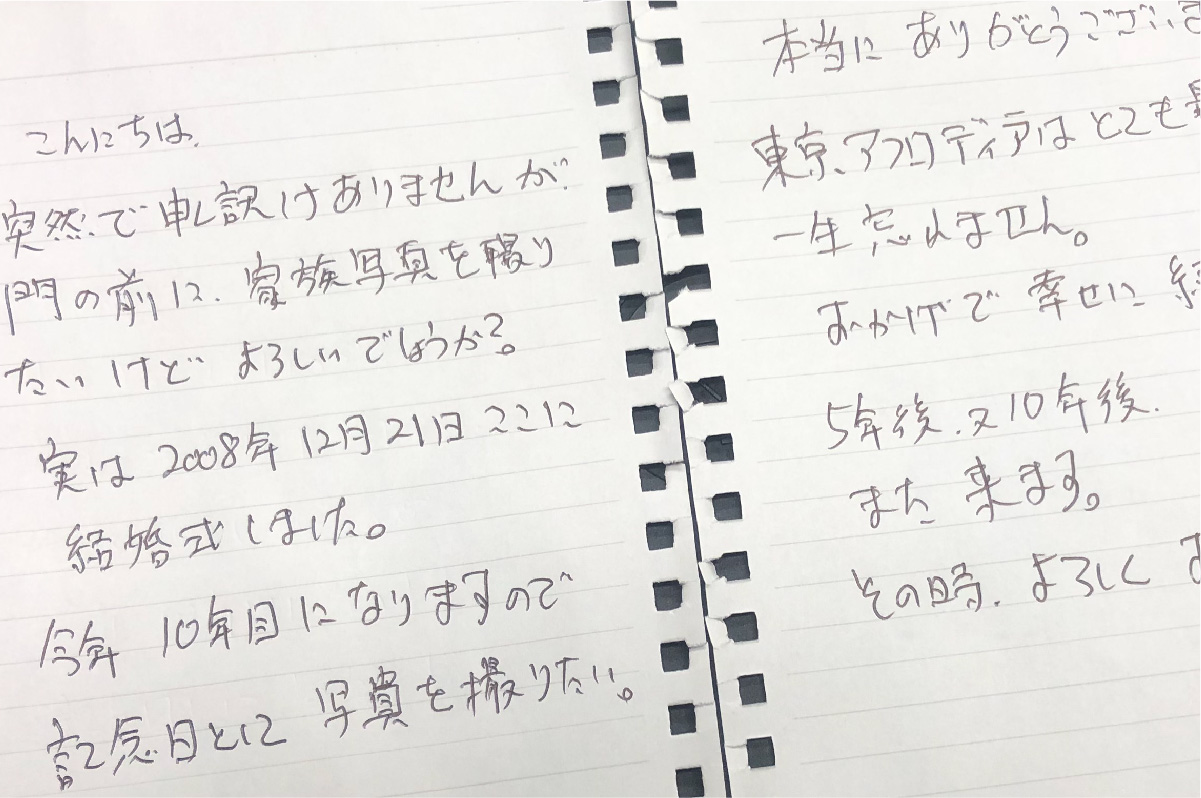 こんにちは、
突然で申し訳けありませんが、
門の前に、家族写真を撮り
たいけど よろしいでしょうか?。
実は 2008年 12月 21日 ここに
結婚式しました。
今年 10年目になりますので
記念日とに 写真を撮りたい。
本当に ありがとうござい
東京、アフロディアは とても
一生 忘れません。
おかげで 幸せに
5年後、又 10年後、
また 来ます。
その時、よろしく